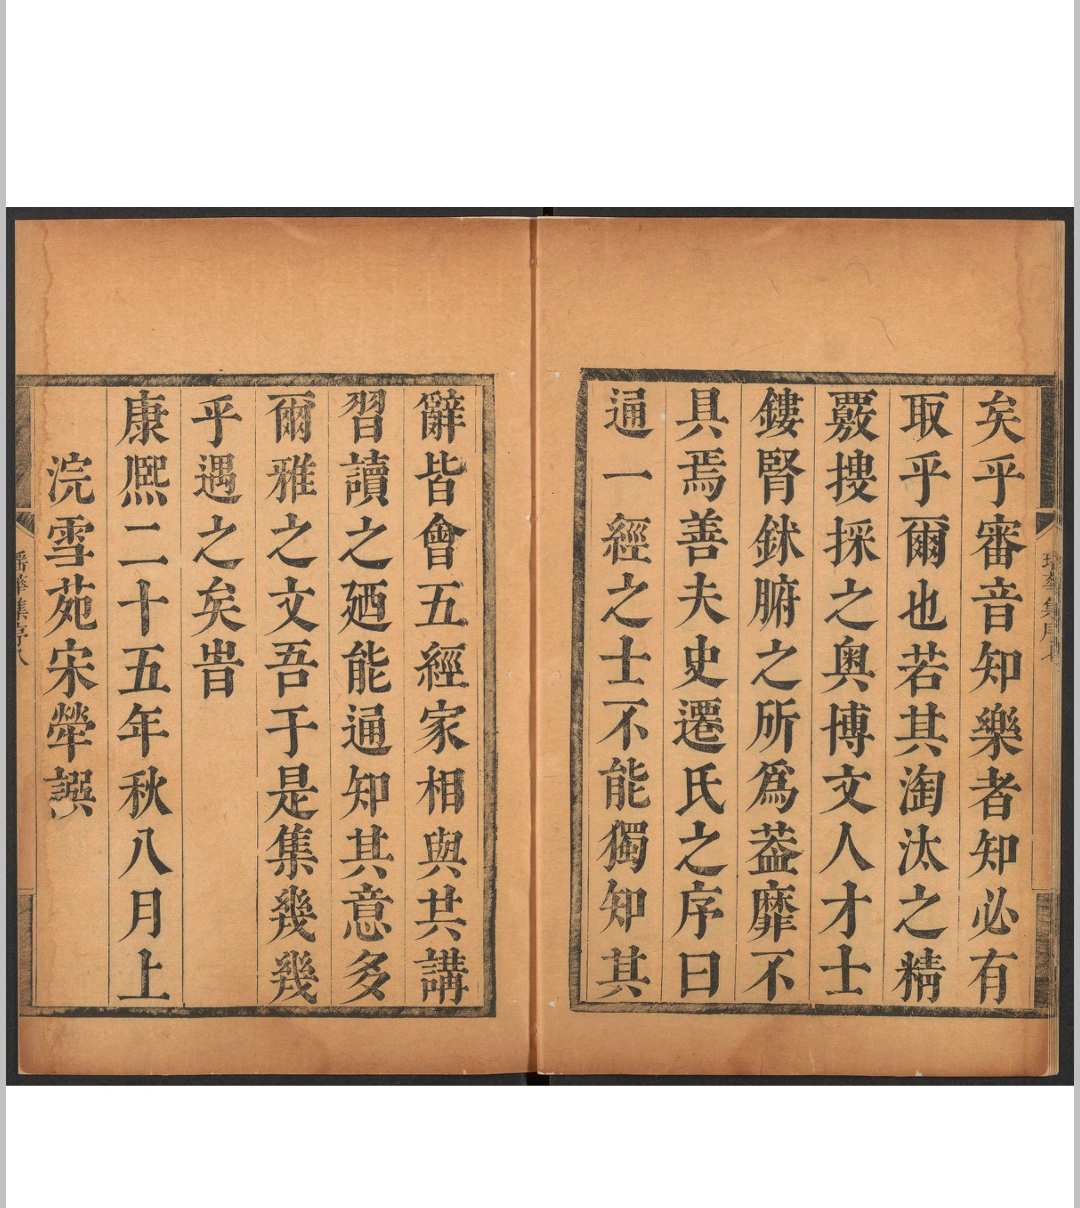 矣乎審音知樂者知必有
取乎爾也若其淘汰之精
覈搜採之奧博文人才士
鏤腎鉥腑之所爲葢靡不
具焉善夫史遷氏之序曰
通一經之士不能獨知其
辭皆會五經家相與共講
習讀之廼能通知其意多
爾雅之文吾于是集幾幾
乎遇之矣旹
康熙二十五年秋八月上
浣雪苑宋犖譔
集序八